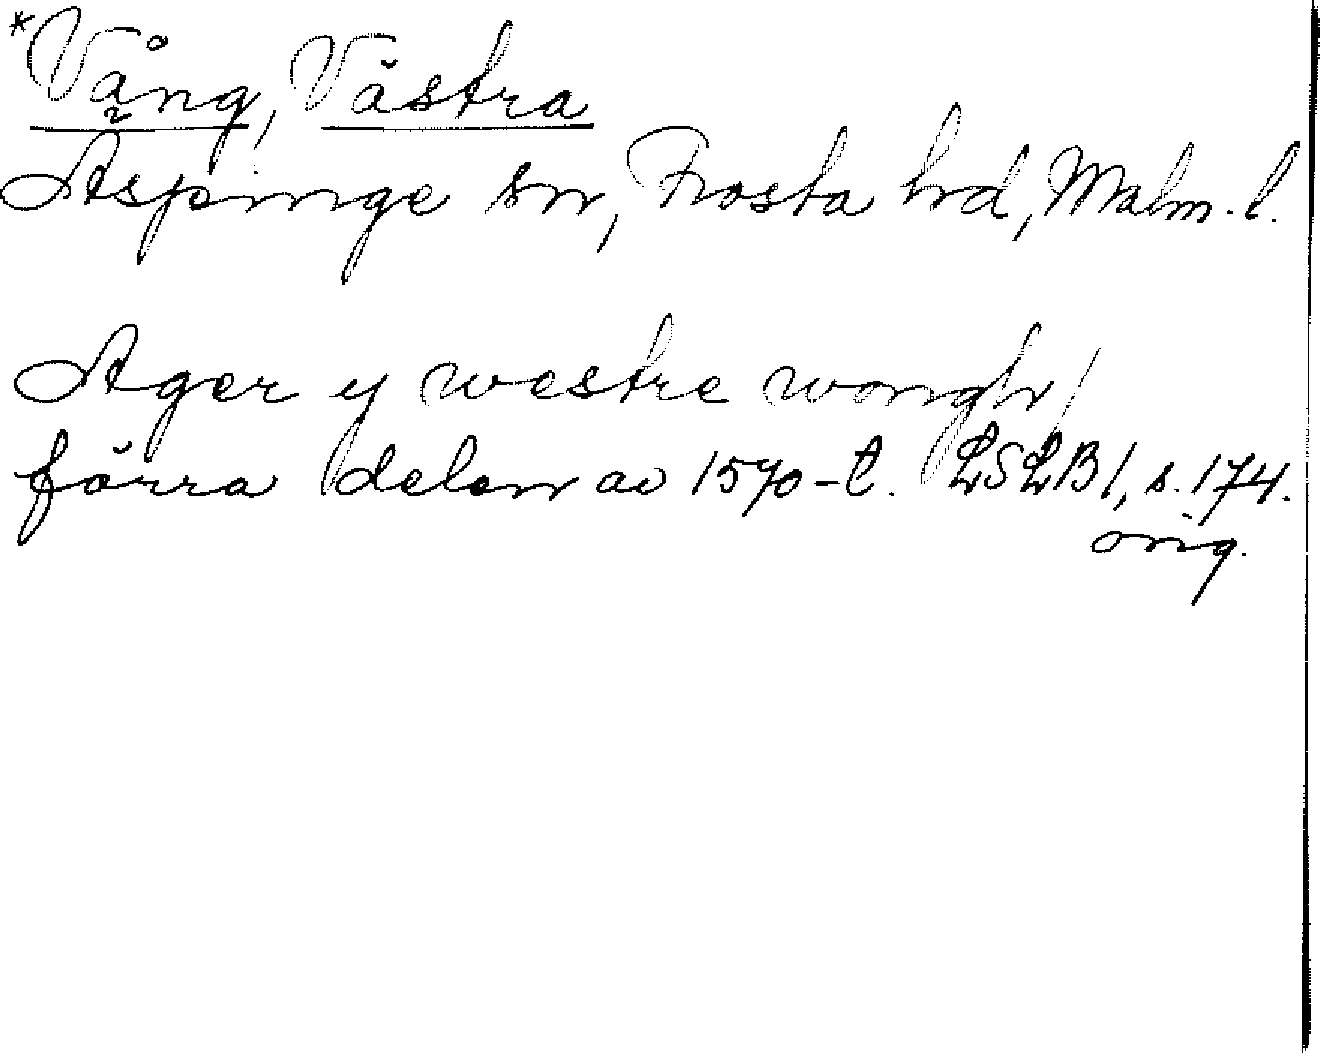 *Vång, Västra
Äspinge sn, Frosta hd, Malm. l.
Ager y westre wongh/
förra delen av 1570-t. LSLB1, s. 174.
orig.